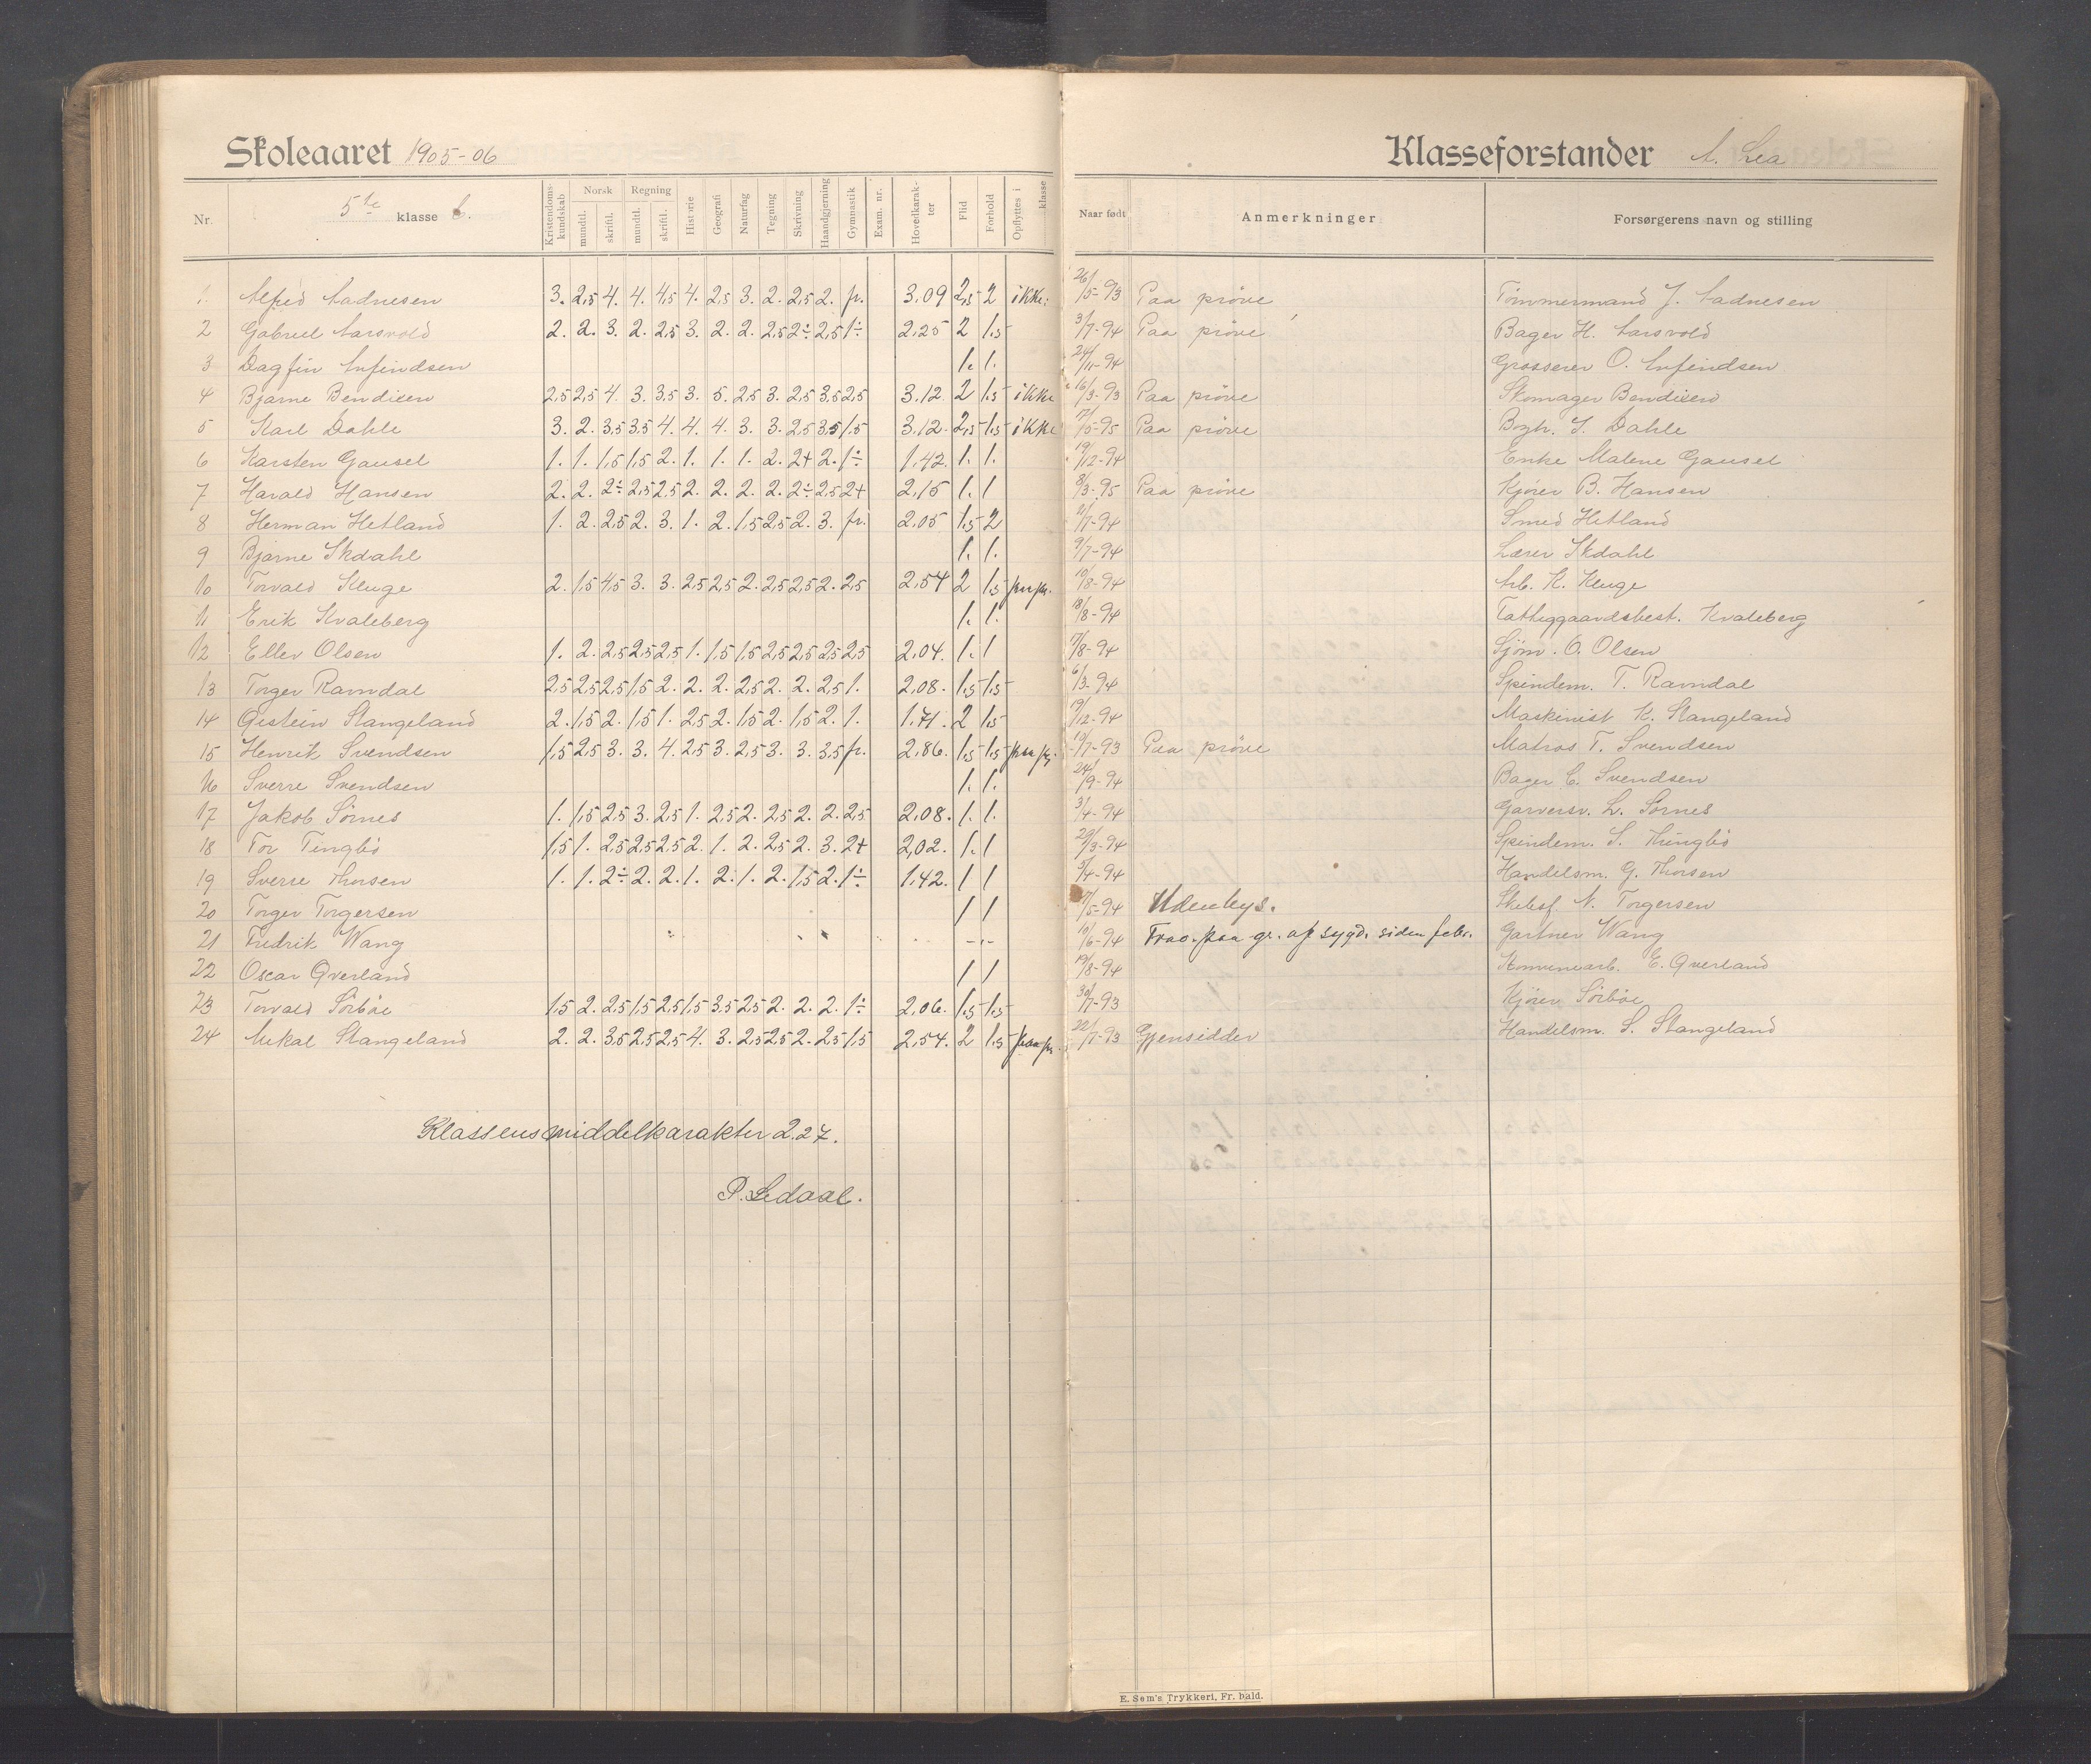 Skoleaaret 1905-06
Nr. 5te klasse C. Kristendomskundskab Norsk mundtl. skriftl. Regning mundtl. skriftl. Historie Geografi Naturfag Tegning Skrivning Haandgjerning Gymnastik Exam. nr. Hovedkarakter Flid Forhold Opflyttes i klasse
1. Alfred Aadnesen 3. 2,5 4. 4. 4,5 4. 2,5 3. 2. 2,5 2. fr. 3.09 2,5 2 ikke
2 Gabriel Aarsvold 2. 2. 3. 2. 2,5 3. 2. 2. 2,5 2÷ 2,5 1÷ 2.25 2 1.5
3 Dagfin Anfindsen 1. 1.
4 Bjarne Bendixen 2,5 2,5 4. 3. 3,5 3. 5. 2,5 3. 2,5 3,5 2,5 3.12. 2 1.5 ikke
5 Karl Dahle 3. 2. 3,5 3,5 4. 4. 4. 3. 3. 2,5 3,5 1,5 3.12. 2,5 1.5 ikke
6 Karsten Gausel 1. 1. 1,5 1,5 2. 1. 1. 1. 2. 2+ 2. 1÷ 1,42. 1. 1.
7 Harald Hansen 2. 2. 2÷ 2,5 2.5 2. 2. 2. 2. 2÷ 2,5 2+ 2,15 1. 1
8 Herman Hetland 1. 2. 2,5 2. 3. 1. 2. 1,5 2,5 2. 3. fr. 2,05 1.5 2
9 Bjarne Skdahl 1. 1.
10 Torvald Kluge 2. 1,5 4,5 3. 3. 2,5 2,5 2. 2,5 2,5 2. 2,5 2,54 2 1.5 paa pr.
11 Erik Kvaleberg 1. 1.
12 Ellev Olsen 1. 2. 2,5 2,5 2,5 1. 1,5 1,5 2,5 2,5 2,5 2,5 2,04. 1. 1
13 Torger Ramdal 2,5 2,5 2,5 1,5 2. 2. 2. 2,5 2. 2. 2,5 1. 2,08. 1.5 1.5
14 Qistein Stangeland 2. 1,5 2. 1,5 1. 2,5 2. 1,5 2. 1,5 2. 1. 1.71. 2 1.5
15 Henrik Svendsen 1,5 2,5 3. 3. 4. 2,5 3. 2,5 3. 3. 3,5 fr. 2,86. 1,5 1.5 paa pr.
16 Sverre Svendsen 1. 1.
17 Jakob Sørnes 1. 1,5 2,5 3. 2,5 1. 2,5 2. 2,5 2. 2. 2,5 2,08. 1. 1.
18 Tor Tingbö 1,5 1. 2,5 2,5 2.5 2. 1. 2. 2,5 2. 3. 2+ 2,02. 1. 1
19 Sverre Thorsen 1. 1. 2÷ 2. 2. 1. 2. 1. 2. 1,5 2. 1÷ 1,42. 1 1
20 Torger Torgersen 1 1
21 Fredrik Wang
22 Oscar Qverland 1 1
23 Torvald Sörböe 1,5 2. 2,5 1,5 2,5 1,5 3,5 2,5 2. 2. 2. 1÷ 2,06. 1.5 1.5
24 Mikal Stangeland 2. 2. 3,5 2,5 2,5 4. 3. 2,5 2,5 2. 2,5 1,5 2,54. 2 1.5 paa pr.
Klassens middelkarakter 2.27.
P. Ledaal.
Klasseforstander A. Lea
Naar født Anmerkninger Forsørgerens navn og stilling
26/5-93 Paa pröve Tömmermand J. Aadnesen
3/7-94 Paa pröve Bager H. Aarsvold
24/11-94 Grosserer O. Anfindsen
16/3-93 Paa pröve Skomager Bendixen
17/5-95 Paa pröve Bogh. S. Dahle
19/12-94 Enke Malene Gausel
8/3-95 Paa pröve Kjörer B. Hansen
2/7-94 Smed Hetland
9/7-94 Lærer Skdahl
10/8-94 Arb. K. Kluge
18/8-94 Fattiggaardsbest. Kvaleberg
7/8-94 Sjöm. O. Olsen
6/3-94 Spindem. T. Ramdal
19/12-94 Maskinist K. Stangeland
10/7-93 Paa pröve Matros T. Svendsen
24/9-94 Bager C. Svendsen
3/4-94 Garversv. L. Sørnes
29/3-94 Spindem. S. Thingbö
3/4-94 Handelsm. G. Thorsen
17/5-94 Udenbys. N. Torgersen
10/6-94 Frav. paa gr. af sygd. siden febr. Gartner Wang
19/8-94 E. Qverland
30/7-93 Kjörer Sörböe
22/7-93 Gjensidder Handelsm. S. Stangeland
E. Søm's Trykkeri, Fr. hald.